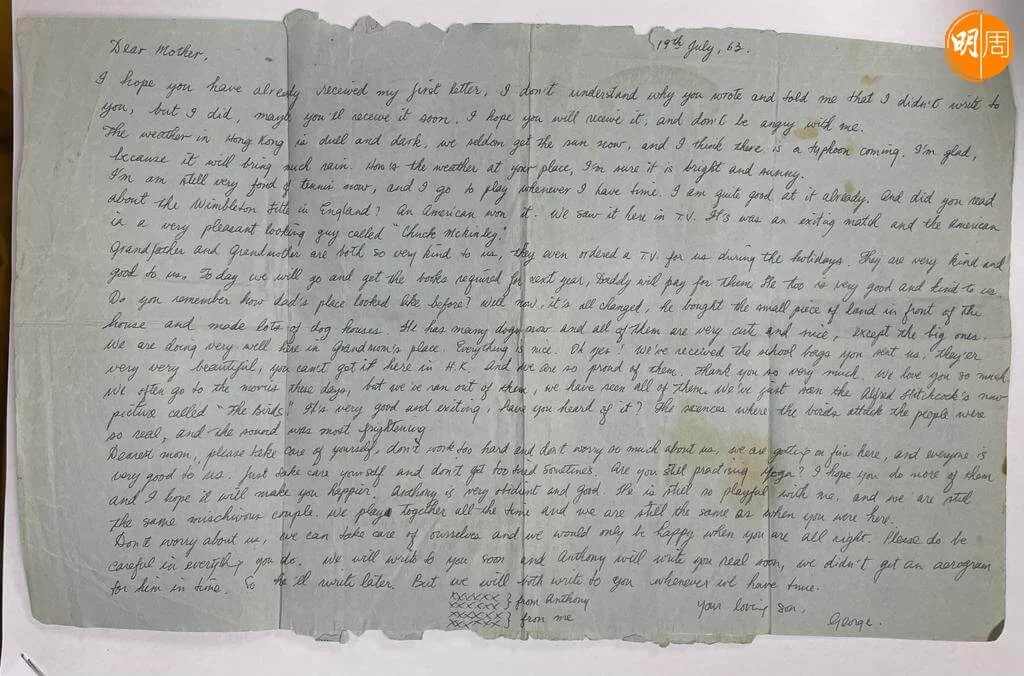 明周
Dear Mother,
19th July, 63.
I hope you have already received my first letter, I don't understand why you wrote and told me that I didn't write to
you, but I did, maybe you'll receive it soon. I hope you will receive it, and don't be angry with me.
The weather in Hong Kong is dull and dark, we seldom get the sun now, and I think there is a typhoon coming. I'm glad,
because it will bring much rain. How's the weather at your place, I'm sure it is bright and sunny.
I'm am still very fond of tennis now, and I go to play whenever I have time. I am quite good at it already. And did you read
about the Wimbleton title in England? An American won it. We saw it here in T.V. It's was an exiting match and the american
is a very pleasant looking guy called "Chuck Mckinley."
Grandfather and Grandmother are both so very kind to us, they even ordered a T.V. for us during the holidays. They are very kind and
good to us. Today we will go and get the books required for next year, Daddy will pay for them. He too is very good and kind to us.
Do you remember how dad's place looked like before? Well now, it's all changed, he bought the small piece of land in front of the
house and made lots of dog houses. He has many dogs now and all of them are very cute and nice, except the big ones.
We are doing very well here in Grandmom's place. Everything is nice. Oh yes! We've received the school bags you sent us, they'er
very very beautiful, you can't get it here in H.K. and we are so proud of them. Thank you so very much. We love you so much.
We often go to the movies these days, but we've ran out of them, we have seen all of them. We've just seen the Alfred Hitchcock's new
picture called "The Birds." It's very good and exiting, have you heard of it? The scences where the birds attack the people were
so real, and the sound was most frightening.
Dearest mom, please take care of yourself, don't work too hard and don't worry so much about us, we are getting on fine here, and everyone is
very good to us. Just take care yourself and don't get too tired sometimes. Are you still practising Yoga? I hope you do more of them
and I hope it will make you happier. Anthony is very obidient and good. He is still so playful with me, and we are still
the same mischivous couple. We play together all the time and we are still the same as when you were here.
Don't worry about us, we can take care of ourselves and we would only be happy when you are all right. Please do be
careful in everything you do. We will write to you soon and Anthony will write you real soon, we didn't get an aerogram
for him in time. So he'll write later. But we will both write to you whenever we have time.
xxxxx
xxxxx } from Anthony
xxxxx
xxxxx } from me
Your loving son,
George.